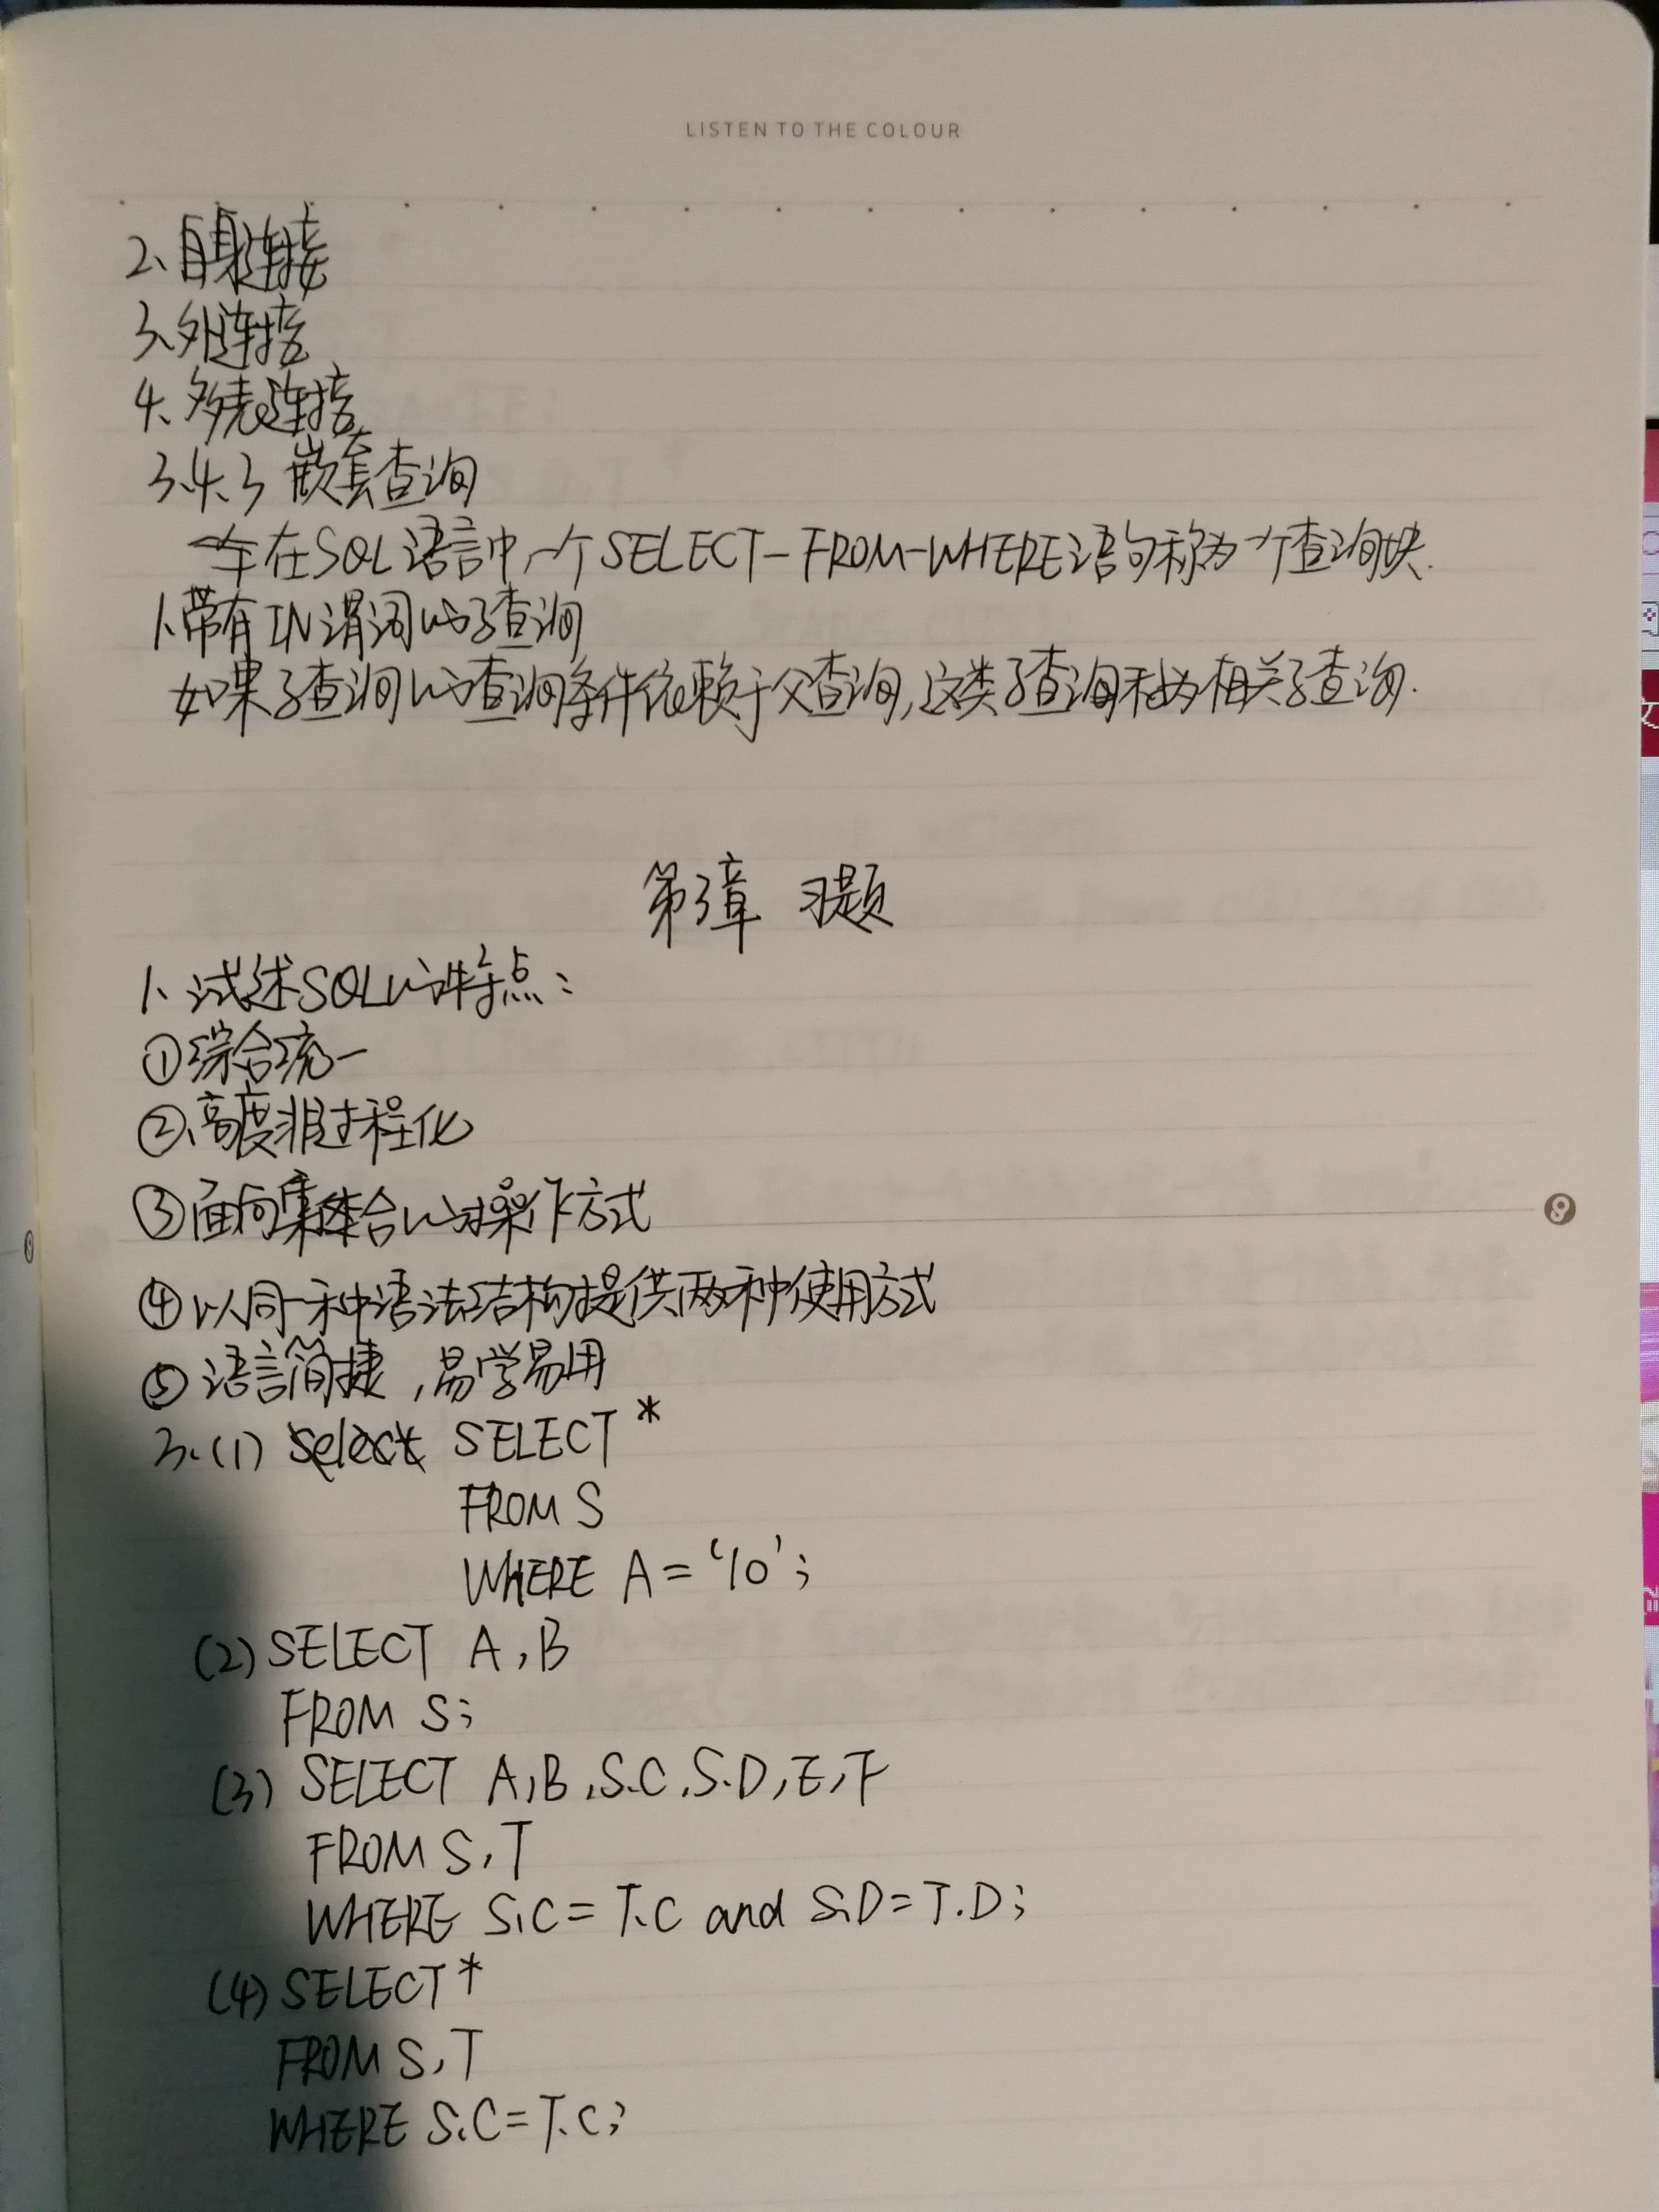 LISTEN TO THE COLOUR
2、自身连接
3、外连接
4、多表连接
3.4.3 嵌套查询
在SQL语言中,一个SELECT-FROM-WHERE语句称为一个查询块.
1、带有IN谓词的子查询
如果子查询的查询条件依赖于父查询,这类子查询称为相关子查询.
第3章 习题
1、试述SQL的特点:
①综合统一
②、高度非过程化
③面向集合的操作方式
④以同一种语法结构提供两种使用方式
⑤语言简捷,易学易用
3.(1) Select SELECT *
FROM S
WHERE A = '10';
(2) SELECT A,B
FROM S;
(3) SELECT A,B,S.C,S.D,E,F
FROM S,T
WHERE S.C = T.C and S.D = T.D;
(4) SELECT *
FROM S,T
WHERE S.C = T.C;